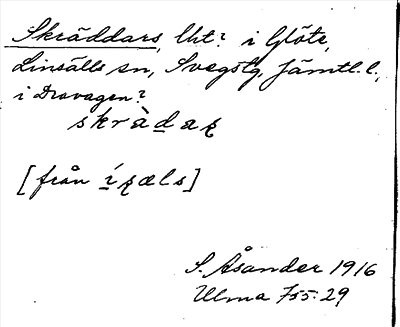 Skräddars, lht? i Glöte,
Linsälls sn, Svegs tg, Jämtl. l.,
i Dravagen?
skràdaʀ
[från íʀæls]
S. Åsander 1916
Ulma 755:29